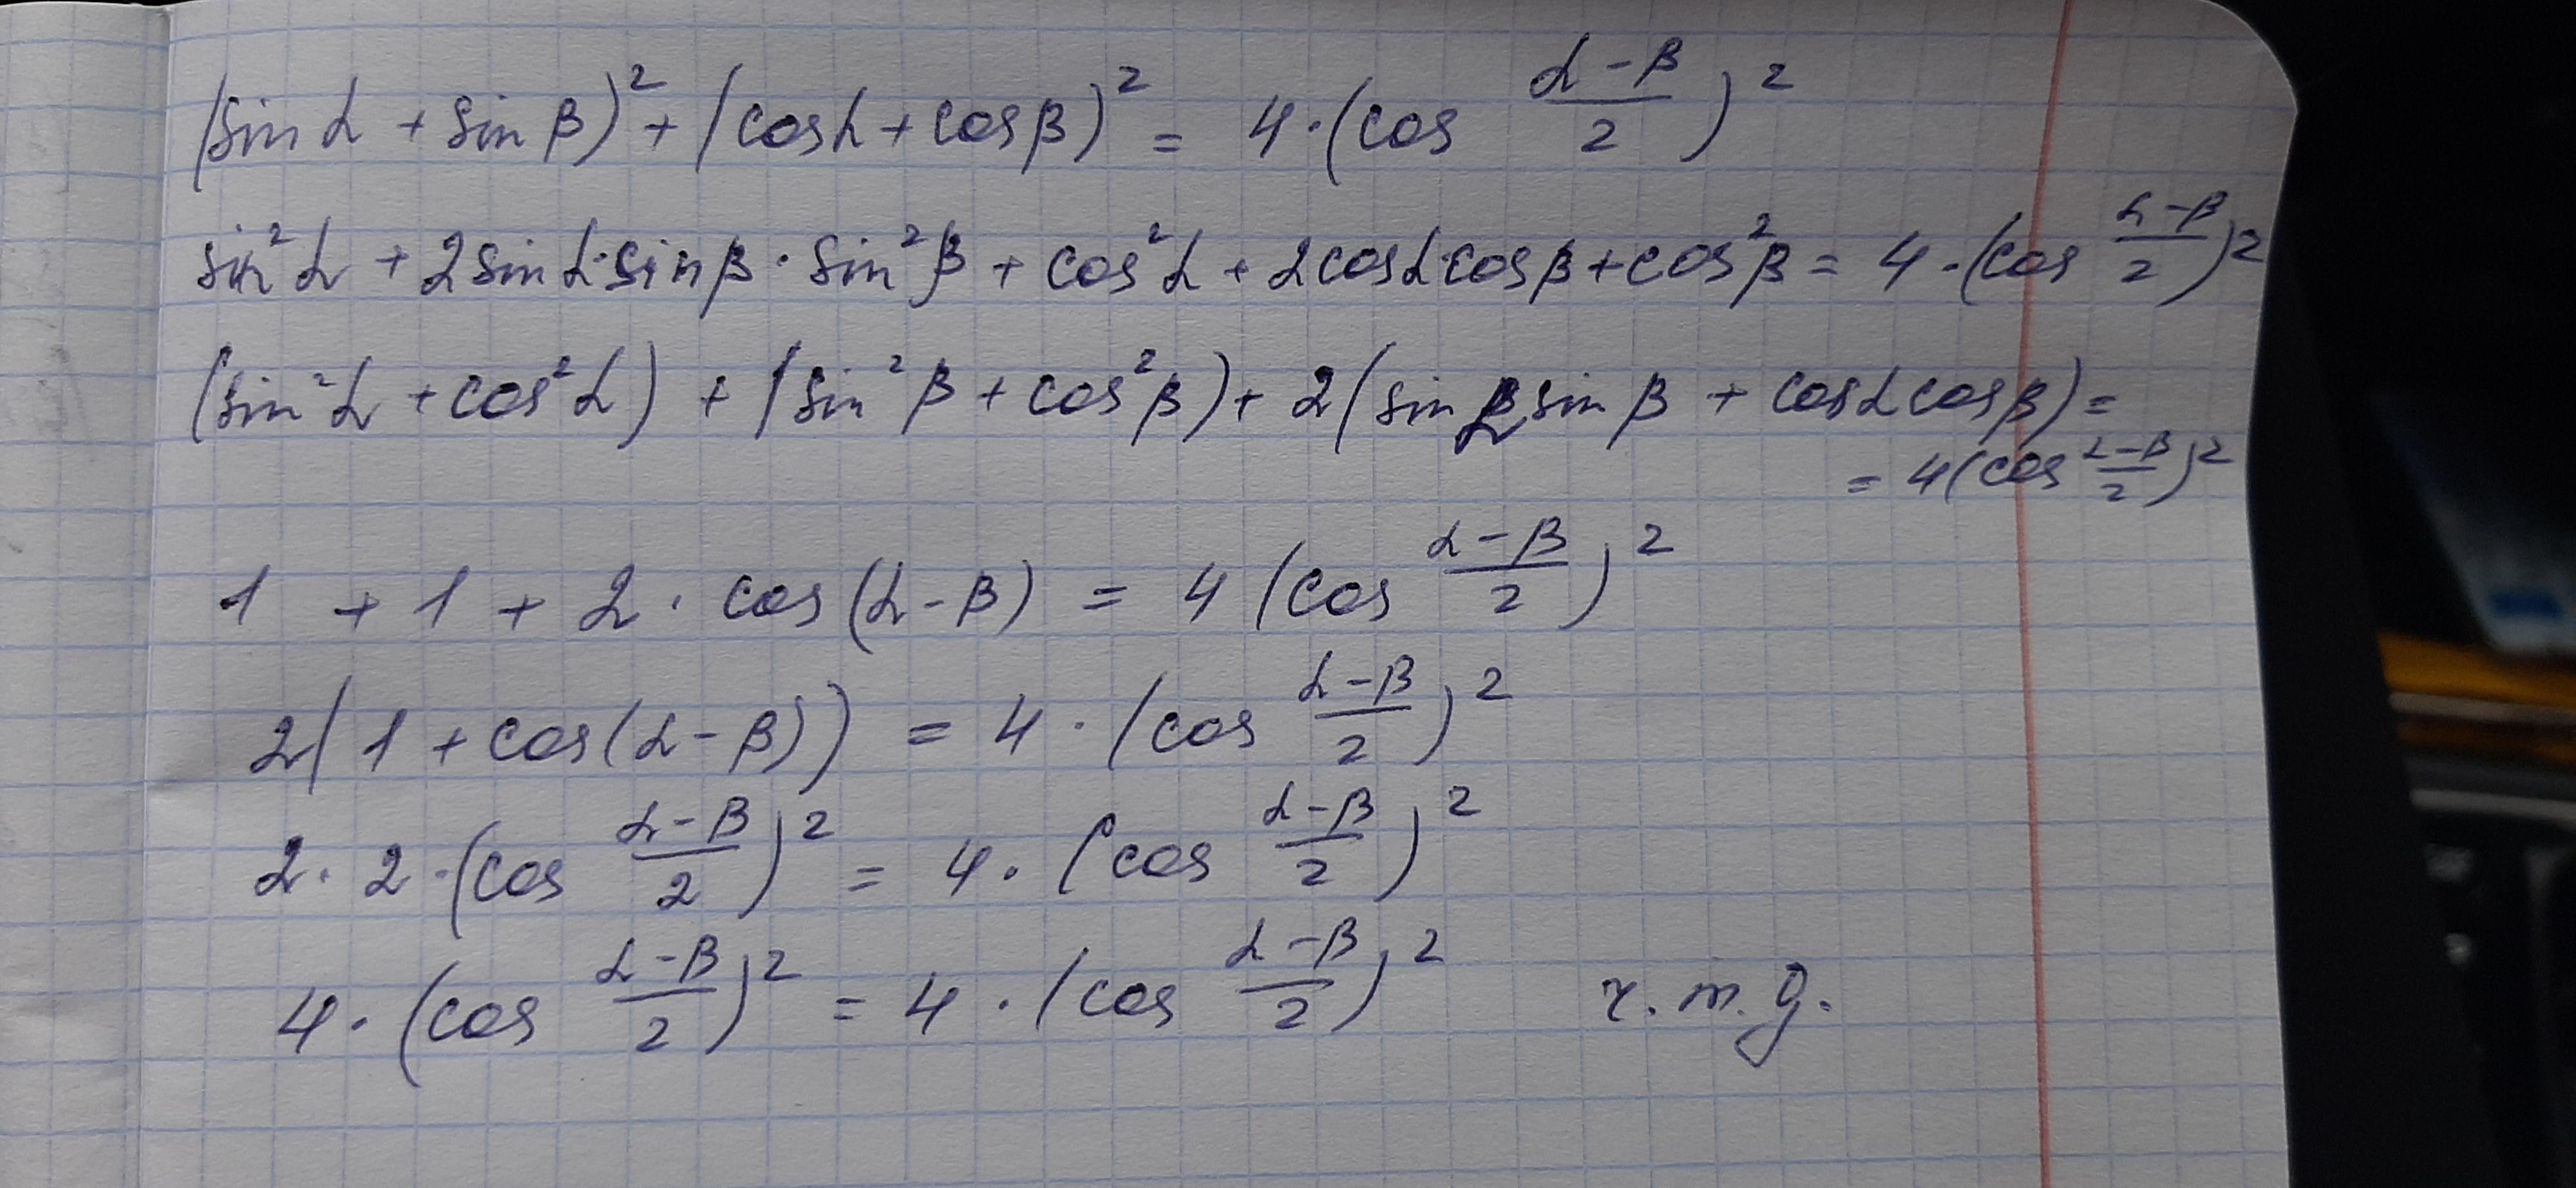 (sin α + sin β)² + (cos α + cos β)² = 4 · (cos (α − β)/2)²
sin² α + 2 sin α · sin β · sin² β + cos² α + 2 cos α · cos β + cos² β = 4 · (cos (α − β)/2)²
(sin² α + cos² α) + (sin² β + cos² β) + 2 (sin α sin β + cos α cos β) =
= 4 (cos (α − β)/2)²
1 + 1 + 2 · cos (α − β) = 4 (cos (α − β)/2)²
2 (1 + cos (α − β)) = 4 · (cos (α − β)/2)²
2 · 2 · (cos (α − β)/2)² = 4 · (cos (α − β)/2)²
4 · (cos (α − β)/2)² = 4 · (cos (α − β)/2)² ч. т. д.